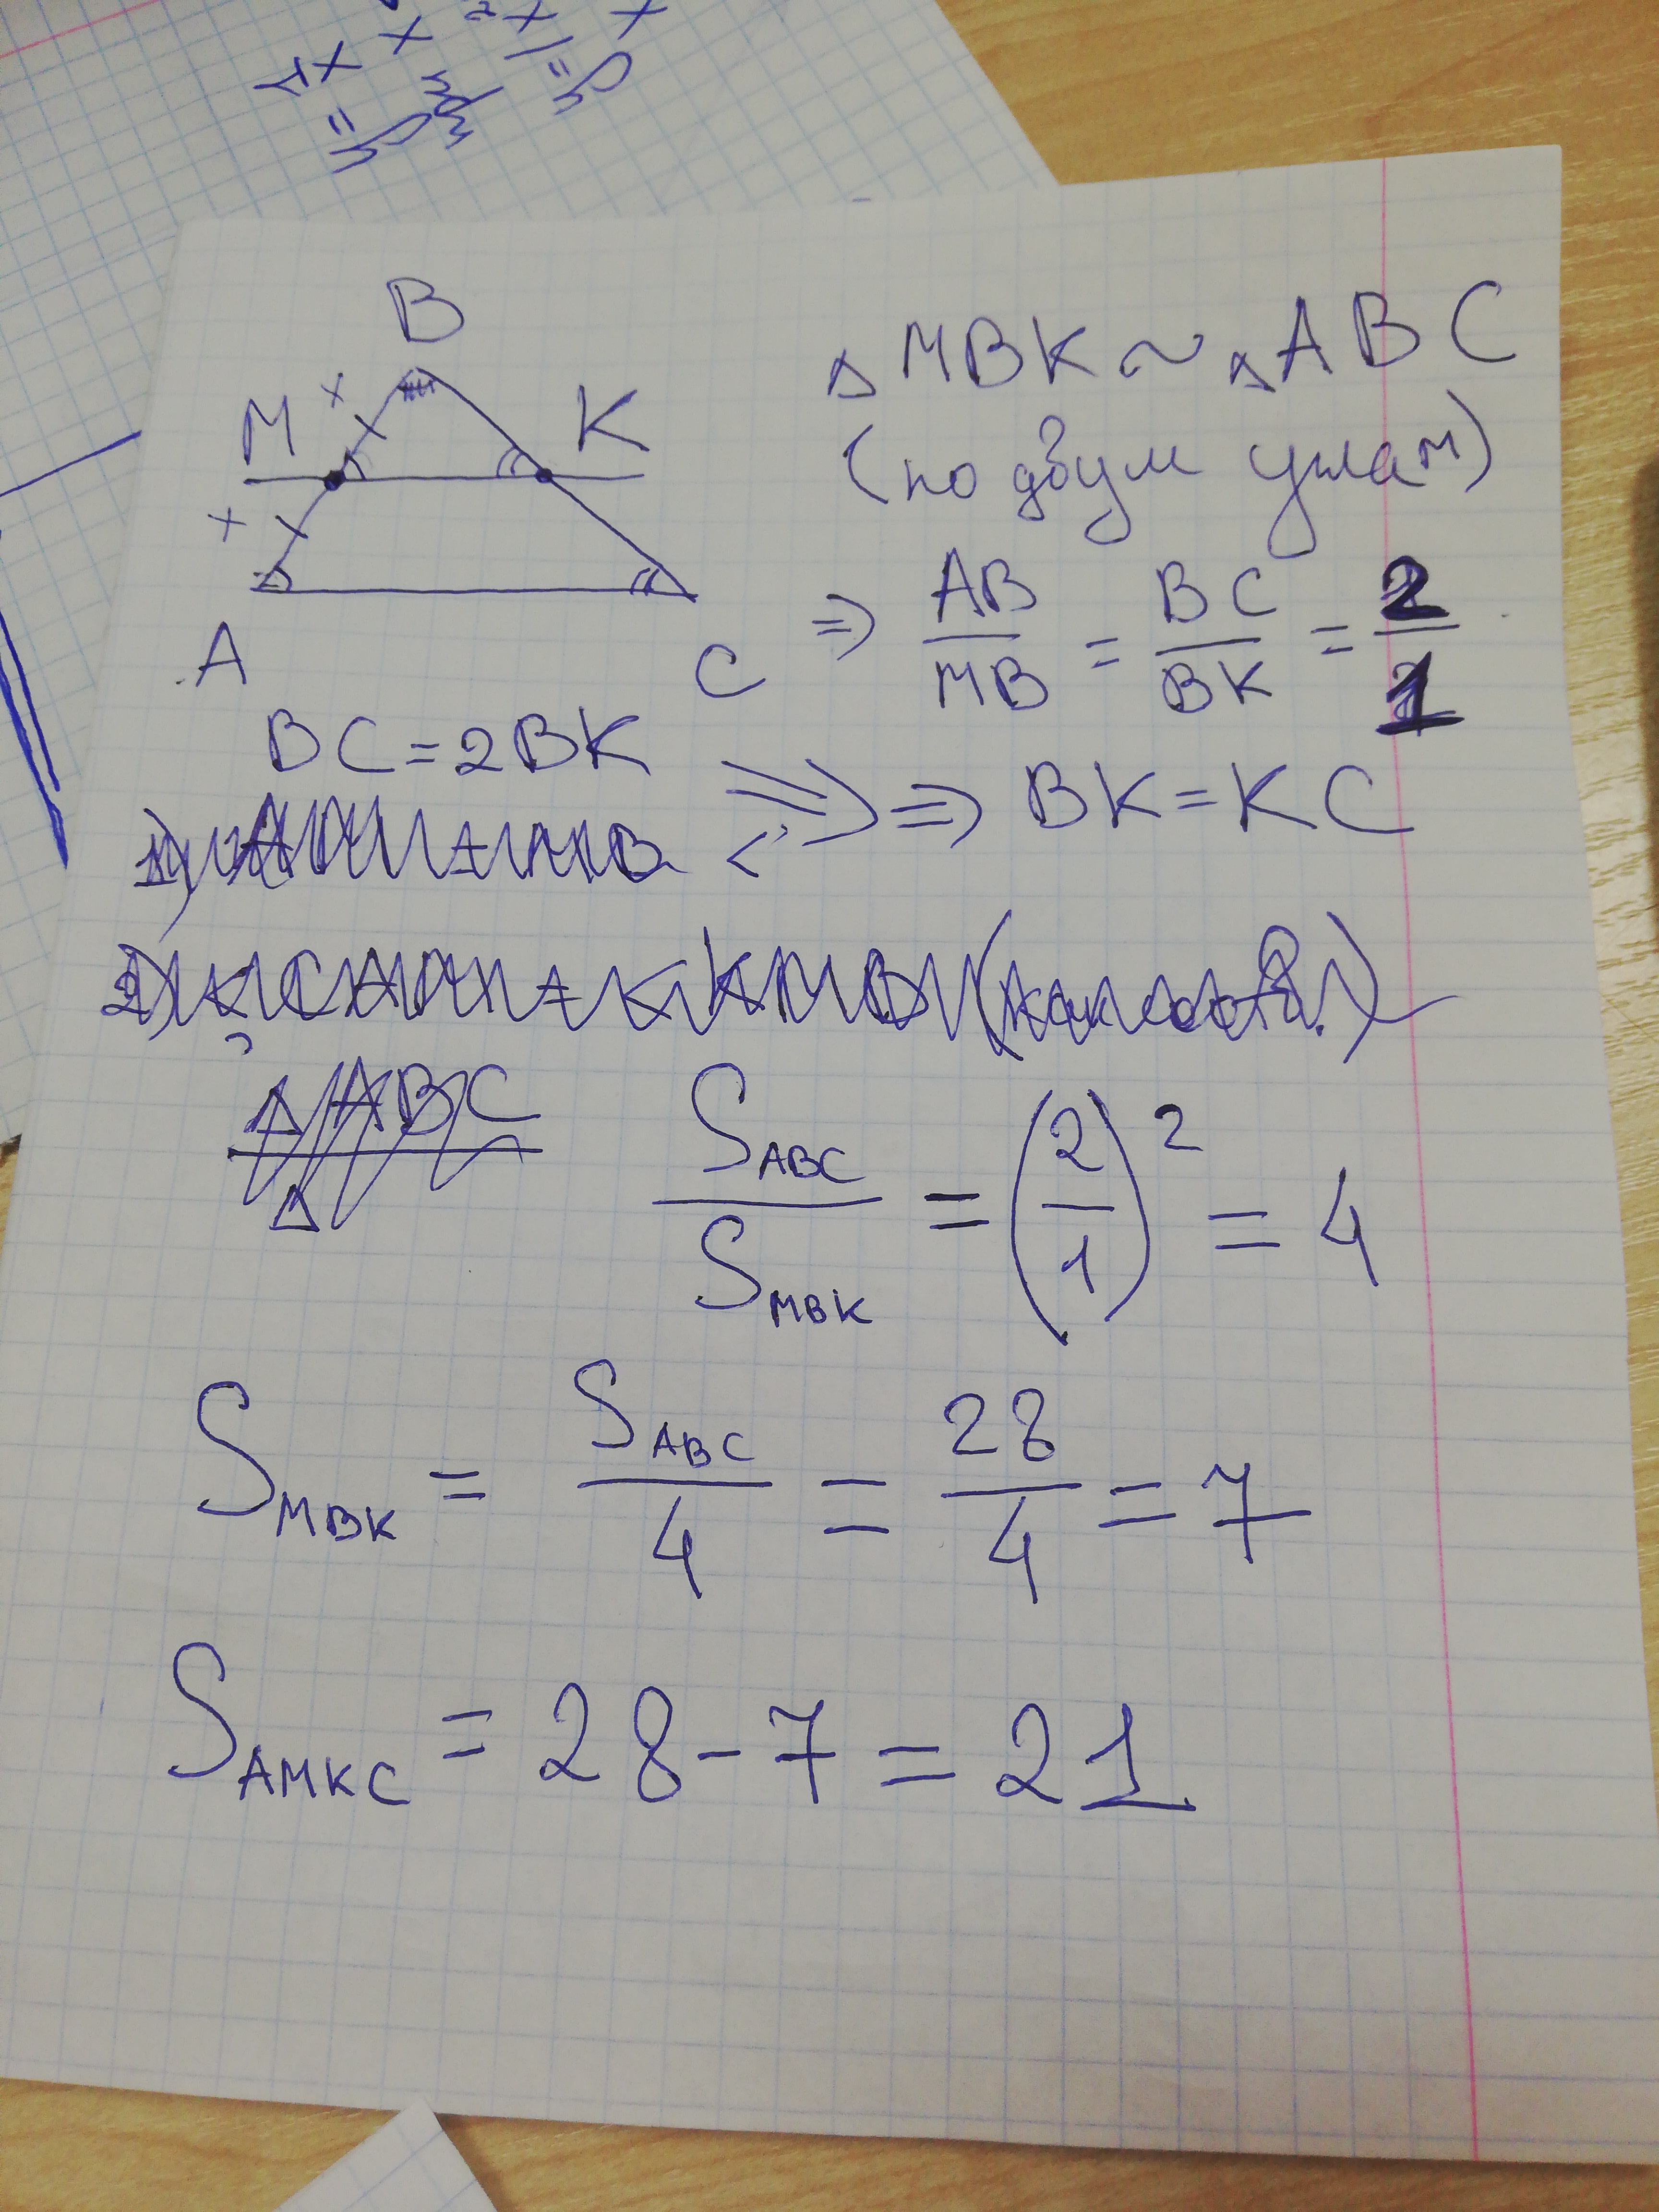 B
M x K
x
A C
△MBK ~ △ABC
(по двум углам)
=> AB/MB = BC/BK = 2/1
BC = 2BK => => BK = KC
△ABC
△
S_ABC/S_MBK = (2/1)² = 4
S_MBK = S_ABC/4 = 28/4 = 7
S_AMKC = 28 - 7 = 21